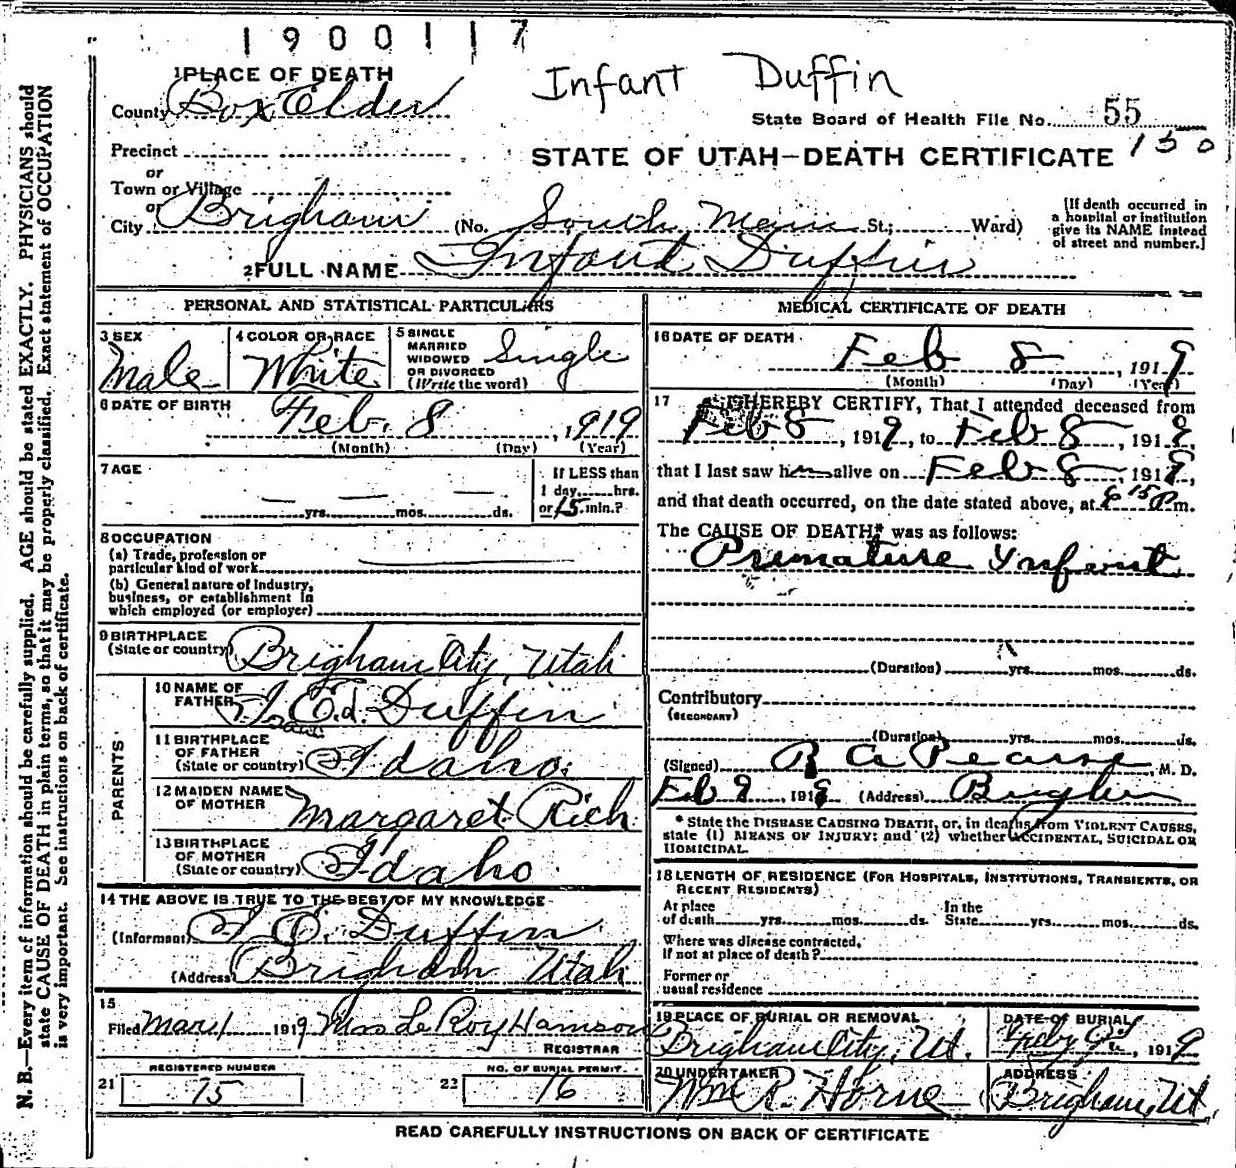 1900117
Infant Duffin
1 PLACE OF DEATH
County Box Elder
State Board of Health File No. 55
150
Precinct
or
Town or Village
or
STATE OF UTAH—DEATH CERTIFICATE
City Brigham (No. South Main St.; Ward)
[If death occurred in
a hospital or institution
give its NAME instead
of street and number.]
2 FULL NAME Infant Duffin
PERSONAL AND STATISTICAL PARTICULARS
3 SEX
Male
4 COLOR OR RACE
White
5 SINGLE
MARRIED
WIDOWED
OR DIVORCED
(Write the word)
Single
6 DATE OF BIRTH
Feb. 8, 1919
(Month) (Day) (Year)
7 AGE
yrs. mos. ds.
If LESS than
1 day, hrs.
or 15 min.?
8 OCCUPATION
(a) Trade, profession or
particular kind of work
(b) General nature of industry,
business, or establishment in
which employed (or employer)
9 BIRTHPLACE
(State or country) Brigham City, Utah
PARENTS
10 NAME OF
FATHER Ed. Duffin
11 BIRTHPLACE
OF FATHER
(State or country) Idaho.
12 MAIDEN NAME
OF MOTHER Margaret Rich
13 BIRTHPLACE
OF MOTHER
(State or country) Idaho
14 THE ABOVE IS TRUE TO THE BEST OF MY KNOWLEDGE
(Informant) E. Duffin
(Address) Brigham Utah
15
Filed Mar 1 1919 Mrs Le Roy Hamson
REGISTRAR
21 REGISTERED NUMBER
75
22 NO. OF BURIAL PERMIT.
16
MEDICAL CERTIFICATE OF DEATH
16 DATE OF DEATH
Feb 8, 1919
(Month) (Day) (Year)
17 I HEREBY CERTIFY, That I attended deceased from
Feb 8, 1919, to Feb 8, 1919,
that I last saw him alive on Feb 8, 1919,
and that death occurred, on the date stated above, at 6 15 P m.
The CAUSE OF DEATH* was as follows:
Premature Ynfant
(Duration) yrs. mos. ds.
Contributory
(SECONDARY)
(Duration) yrs. mos. ds.
(Signed) R A Pearse, M. D.
Feb 9, 1919 (Address) Brigham
* State the DISEASE CAUSING DEATH, or, in deaths from VIOLENT CAUSES,
state (1) MEANS OF INJURY; and (2) whether ACCIDENTAL, SUICIDAL OR
HOMICIDAL.
18 LENGTH OF RESIDENCE (FOR HOSPITALS, INSTITUTIONS, TRANSIENTS, OR
RECENT RESIDENTS)
At place In the
of death yrs. mos. ds. State yrs. mos. ds.
Where was disease contracted,
If not at place of death?
Former or
usual residence
19 PLACE OF BURIAL OR REMOVAL
Brigham City, Ut.
DATE OF BURIAL
Feby 9th, 1919
20 UNDERTAKER
Wm R. Horne
ADDRESS
Brigham, Ut.
READ CAREFULLY INSTRUCTIONS ON BACK OF CERTIFICATE
N. B.—Every item of information should be carefully supplied. AGE should be stated EXACTLY. PHYSICIANS should
state CAUSE OF DEATH in plain terms, so that it may be properly classified. Exact statement of OCCUPATION
is very important. See instructions on back of certificate.